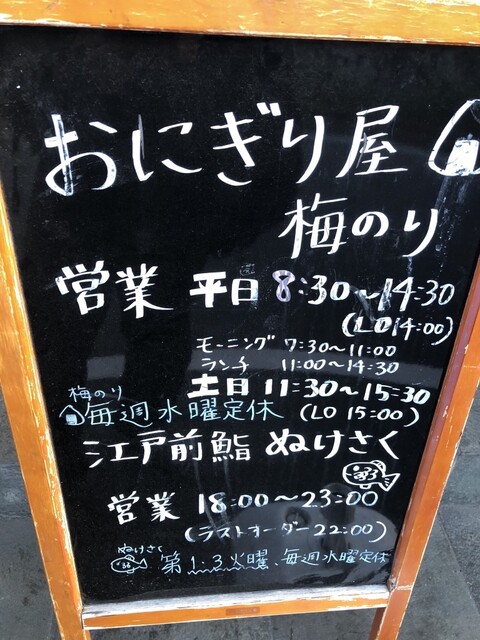 おにぎり屋
梅のり
営業 平日 8:30〜14:30
(LO 14:00)
モーニング 7:30〜11:00
ランチ 11:00〜14:30
土日 11:30〜15:30
梅のり
毎週水曜定休 (LO 15:00)
江戸前鮨 ぬけさく
営業 18:00〜23:00
(ラストオーダー22:00)
ぬけさく
第1.3火曜、毎週水曜定休